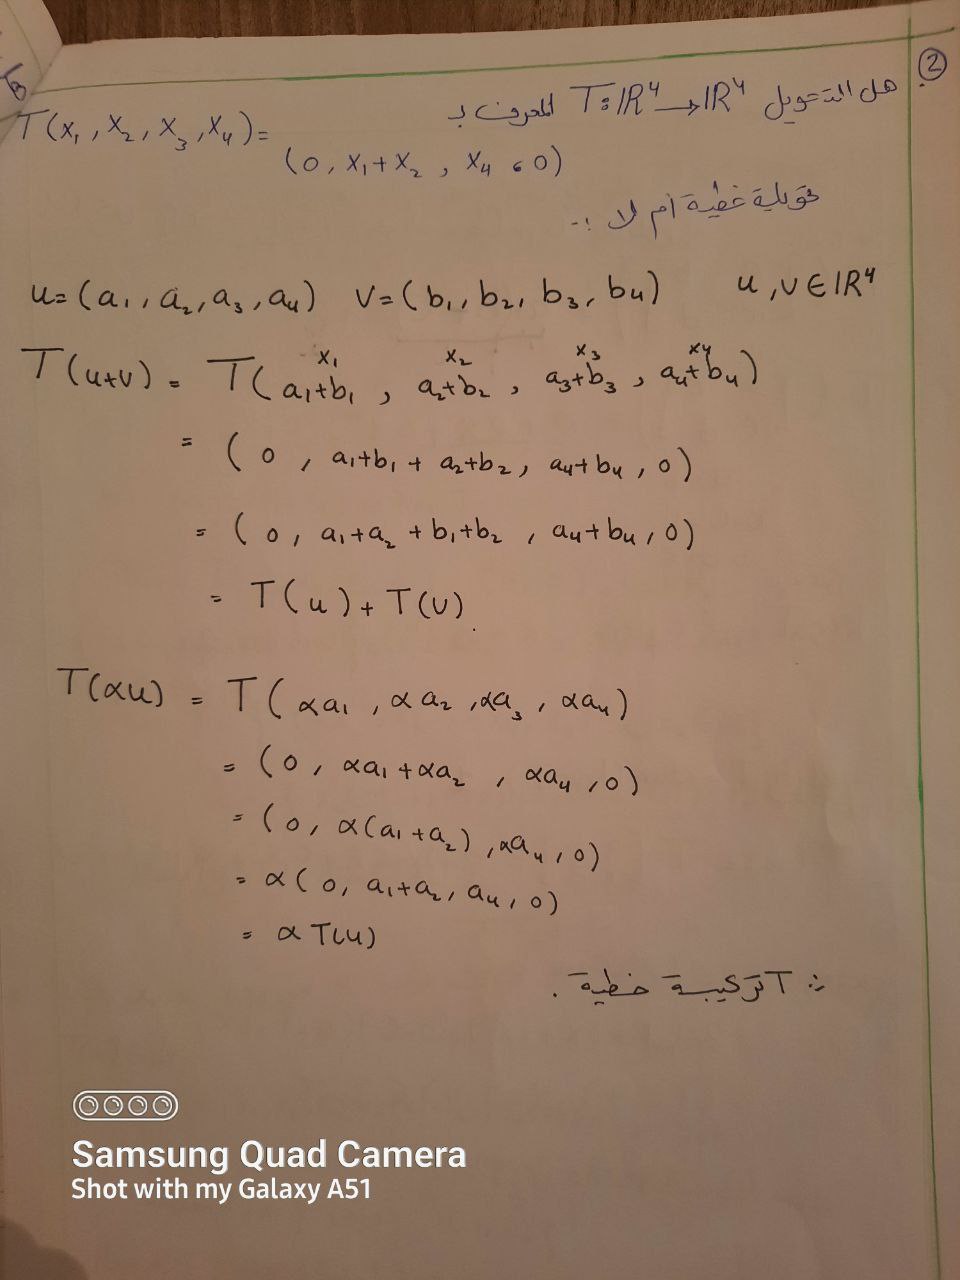 ② هل التحويل T: IR⁴ → IR⁴ المعرف بـ
T(x₁, x₂, x₃, x₄) =
(0, x₁+x₂, x₄, 0)
تحويلة خطية أم لا :-
u = (a₁, a₂, a₃, a₄) v = (b₁, b₂, b₃, b₄) u, v ∈ IR⁴
x₁ x₂ x₃ x₄
T(u+v) = T(a₁+b₁, a₂+b₂, a₃+b₃, a₄+b₄)
= (0, a₁+b₁ + a₂+b₂, a₄+b₄, 0)
= (0, a₁+a₂ + b₁+b₂, a₄+b₄, 0)
= T(u) + T(v).
T(αu) = T(αa₁, αa₂, αa₃, αa₄)
= (0, αa₁+αa₂, αa₄, 0)
= (0, α(a₁+a₂), αa₄, 0)
= α(0, a₁+a₂, a₄, 0)
= α T(u)
∴ T تركيبة خطية.
Samsung Quad Camera
Shot with my Galaxy A51